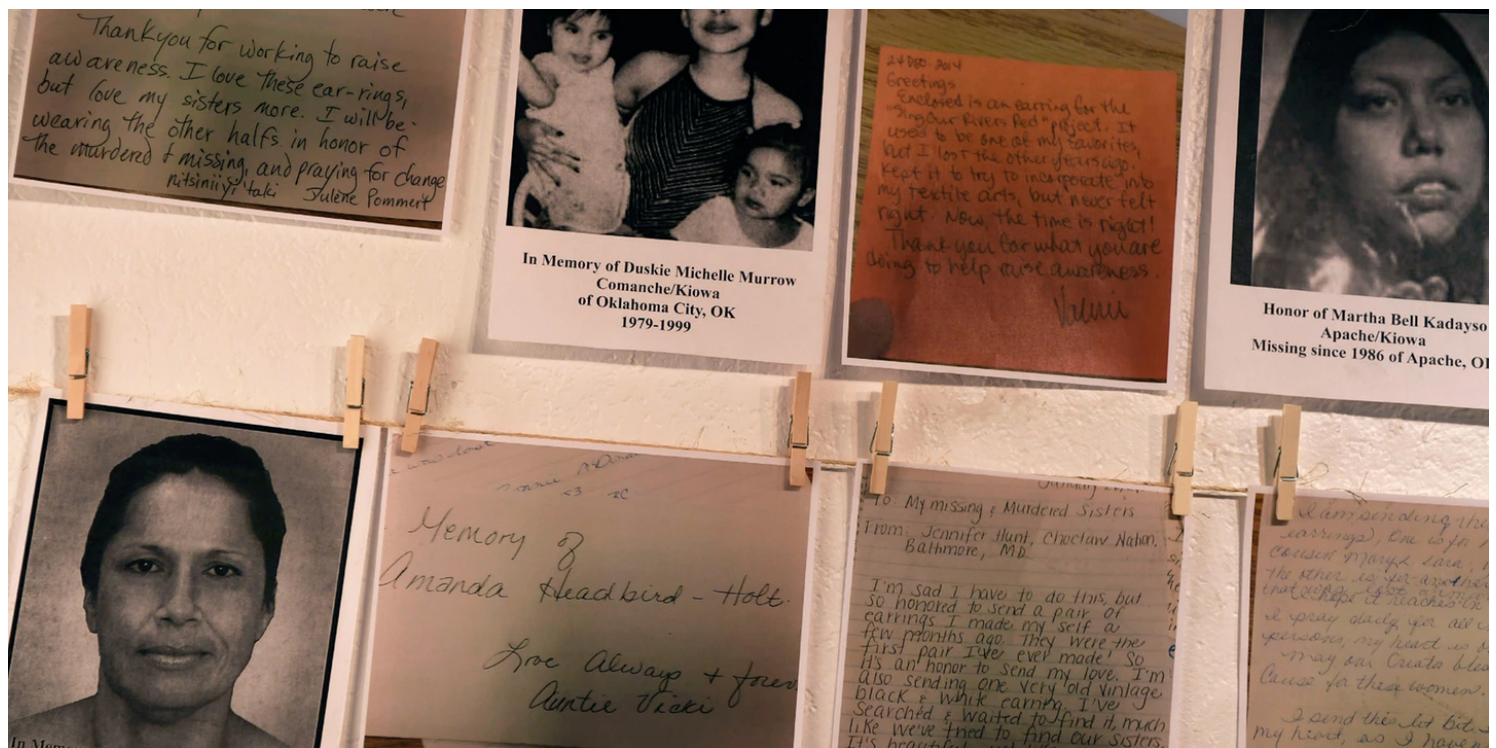 Thankyou for working to raise
awareness. I love these ear-rings,
but love my sisters more. I will be
wearing the other halfs in honor of
the murdered & missing, and praying for change
nitsiniiyi'taki Julene Pommert
In Memory of Duskie Michelle Murrow
Comanche/Kiowa
of Oklahoma City, OK
1979-1999
24 DEC. 2014
Greetings
Enclosed is an earring for the
"Sing Our Rivers Red" project. It
used to be one of my favorites,
but I lost the other years ago.
Kept it to try to incorporate into
my textile arts, but never felt
right. Now, the time is right!
Thank you for what you are
doing to help raise awareness.
Valerie
Honor of Martha Bell Kadayso
Apache/Kiowa
Missing since 1986 of Apache, OK
In Mem
Memory of
Amanda Headbird - Holt.
Love Always + forev
Auntie Vicki
January
To: My missing & Murdered Sisters
From: Jennifer Hunt, Choctaw Nation,
Baltimore, MD
I'm sad I have to do this, but
so honored to send a pair of
earrings I made my self a
few months ago. They were the
first pair I've ever made! So
it's an honor to send my love. I'm
also sending one very old vintage
black & white earring I've
searched & waited to find it, much
like we've tried to find our sisters.
It's beautiful
I am sending the
earrings, One is for
cousin
the other is for another
I hope it reaches
I pray daily for all
persons, my heart is
may our Creator bless
Cause for these women.
I send this lit bit
my heart, as I have